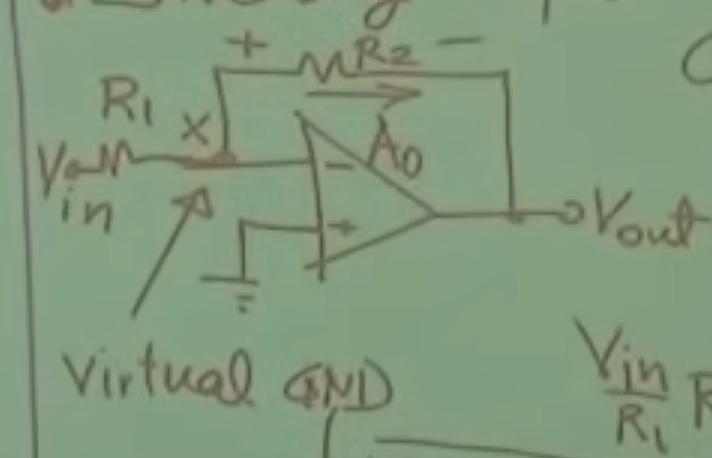 + R2 -
R1 X
A0
Vin
-
+
Vout
Virtual GND
Vin
R1
R